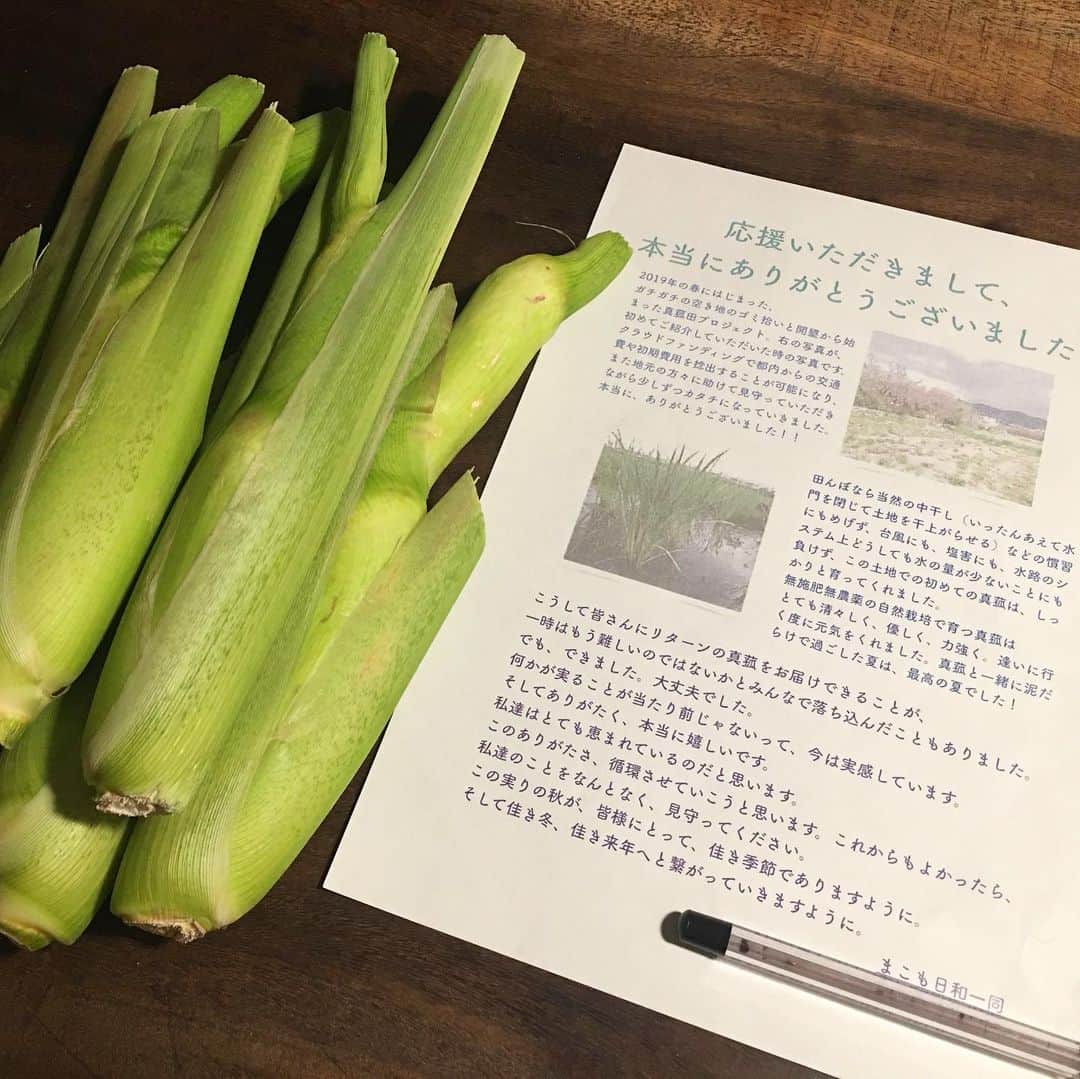 応援いただきまして、
本当にありがとうございました
2019年の春にはじまった、
ガチガチの空き地のゴミ拾いと開墾から始
まった真菰田プロジェクト、右の写真が、
初めてご紹介していただいた時の写真です。
クラウドファンディングで都内からの交通
費や初期費用を捻出することが可能になり、
また地元の方々に助けて見守っていただき
ながら少しずつカタチになっていきました。
本当に、ありがとうございました！！
田んぼなら当然の中干し（いったんあえて水
門を閉じて土地を干上がらせる）などの慣習
にもめげず、台風にも、塩害にも、水路のシ
ステム上どうしても水の量が少ないことにも
負けず、この土地での初めての真菰は、しっ
かりと育ってくれました。
無施肥無農薬の自然栽培で育つ真菰は
とても清々しく、優しく、力強く。逢いに行
く度に元気をくれました。真菰と一緒に泥だ
らけで過ごした夏は、最高の夏でした！
こうして皆さんにリターンの真菰をお届けできることが、
一時はもう難しいのではないかとみんなで落ち込んだこともありました。
でも、できました。大丈夫でした。
何かが実ることが当たり前じゃないって、今は実感しています。
そしてありがたく、本当に嬉しいです。
私達はとても恵まれているのだと思います。
このありがたさ、循環させていこうと思います。これからもよかったら、
私達のことをなんとなく、見守ってください。
この実りの秋が、皆様にとって、佳き季節でありますように。
そして佳き冬、佳き来年へと繋がっていきますように。
まこも日和一同